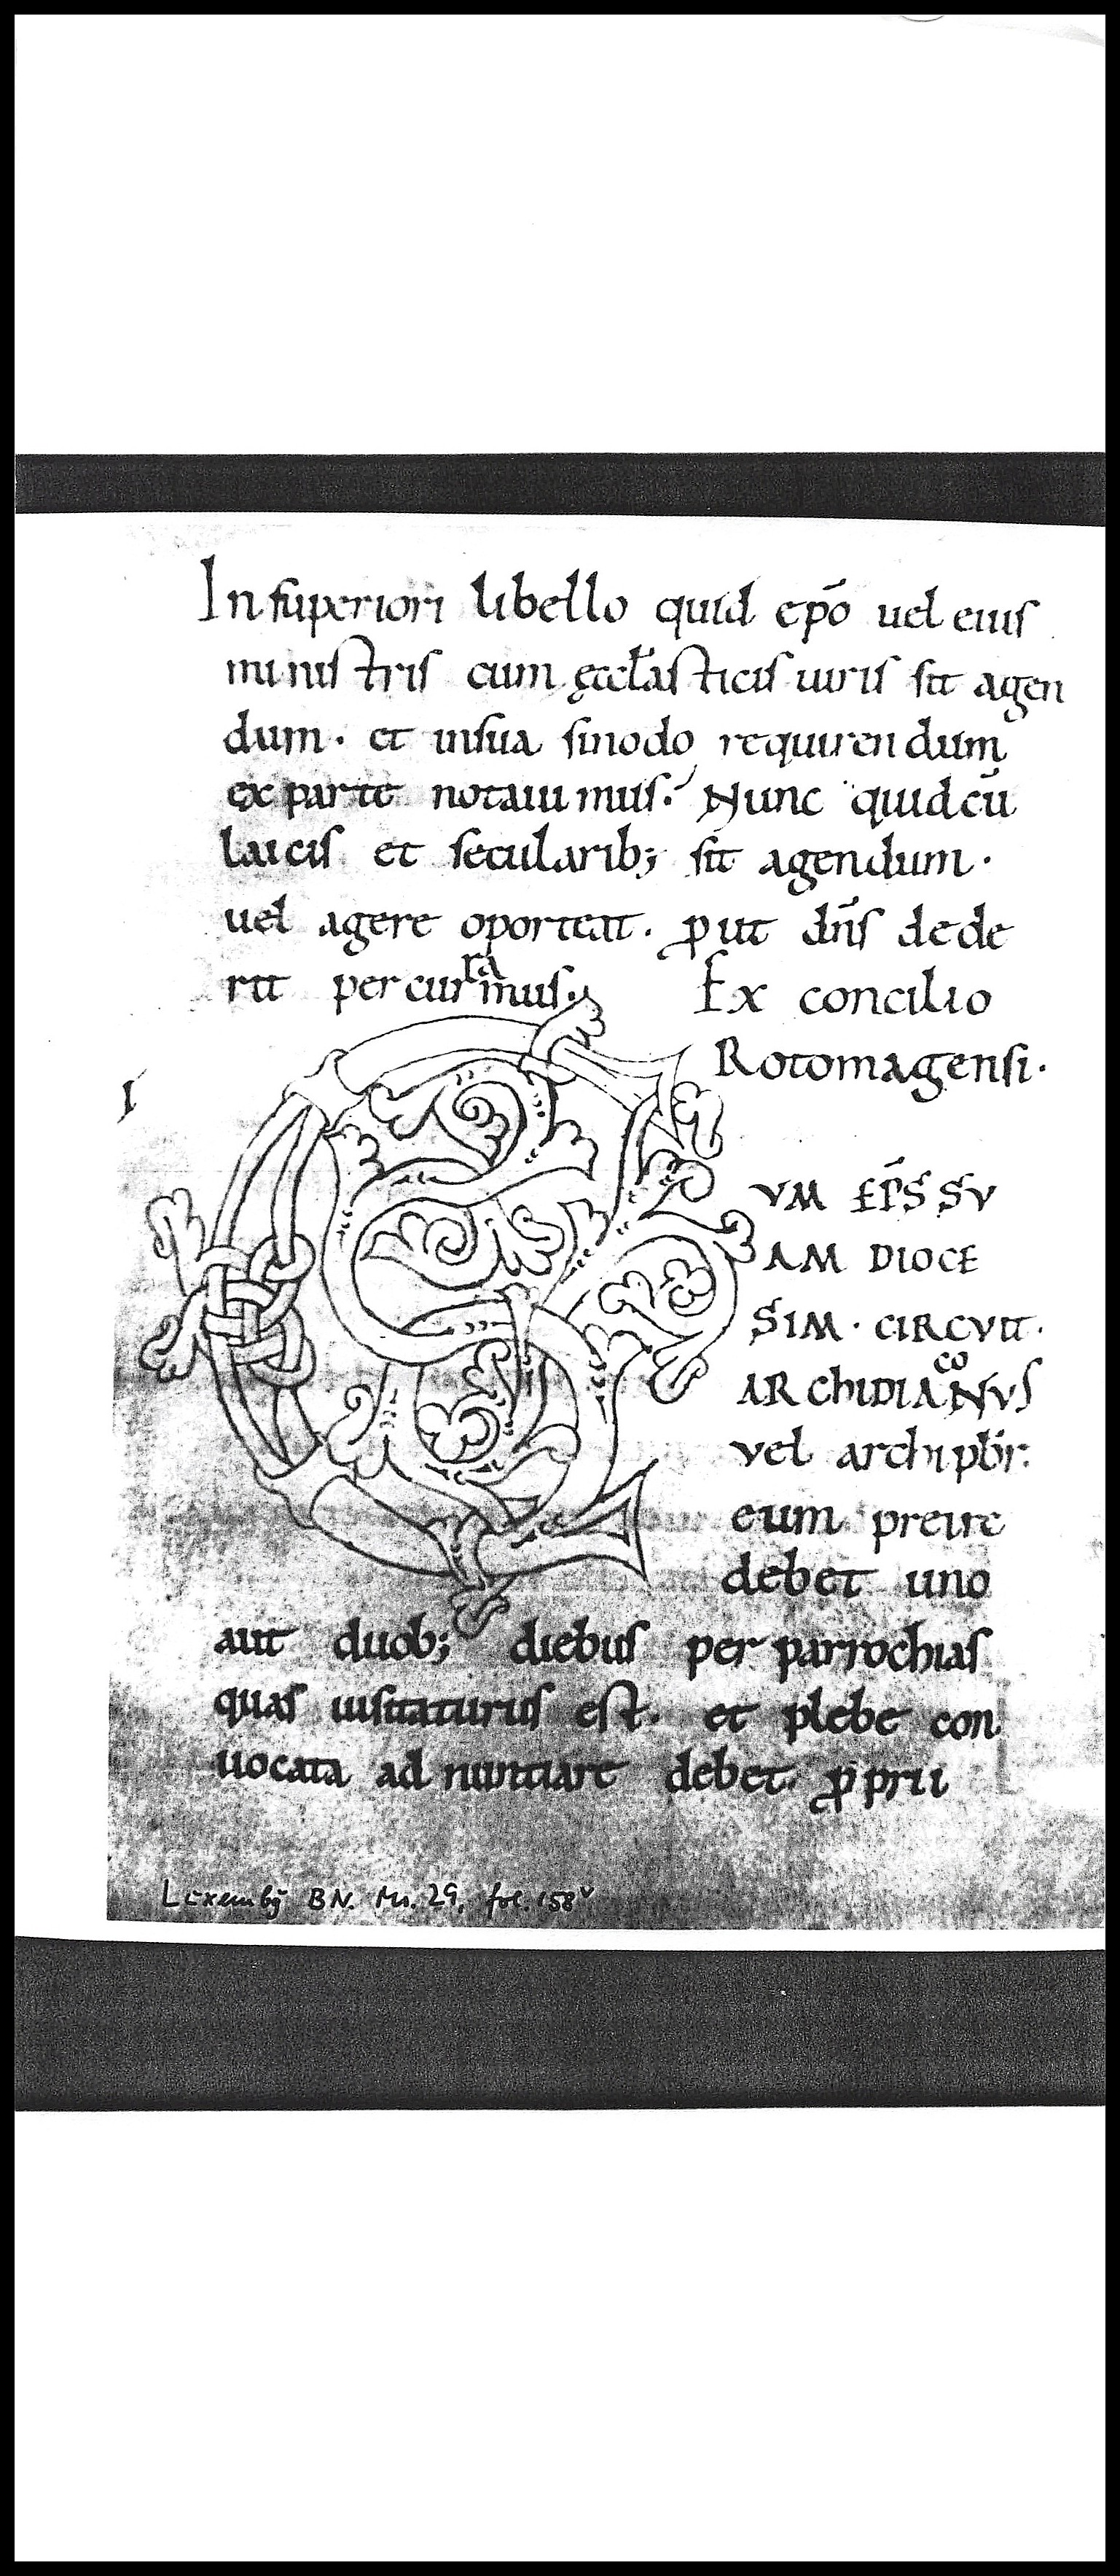 In superiori libello quid ep̄o uel eius
ministris cum ęccl̄asticis uiris sit agen
dum. et in sua sinodo requirendum
ex parte notauimus. Nunc quid cū
laicis et secularib; sit agendum.
uel agere oporteat. ꝓut dn̄s dede
rit percurramus. Ex concilio
Rotomagensi.
I
CVM EP̄S SV
AM DIOCE
SIM. CIRCVIT.
ARCHIDIACONVS
vel archipbr̄.
eum preire
debet uno
aut duob; diebus per parrochias
quas uisitaturus est. et plebe con
uocata adnuntiare debet ꝓprii
Luxembg BN. Ms. 29, fol. 158v